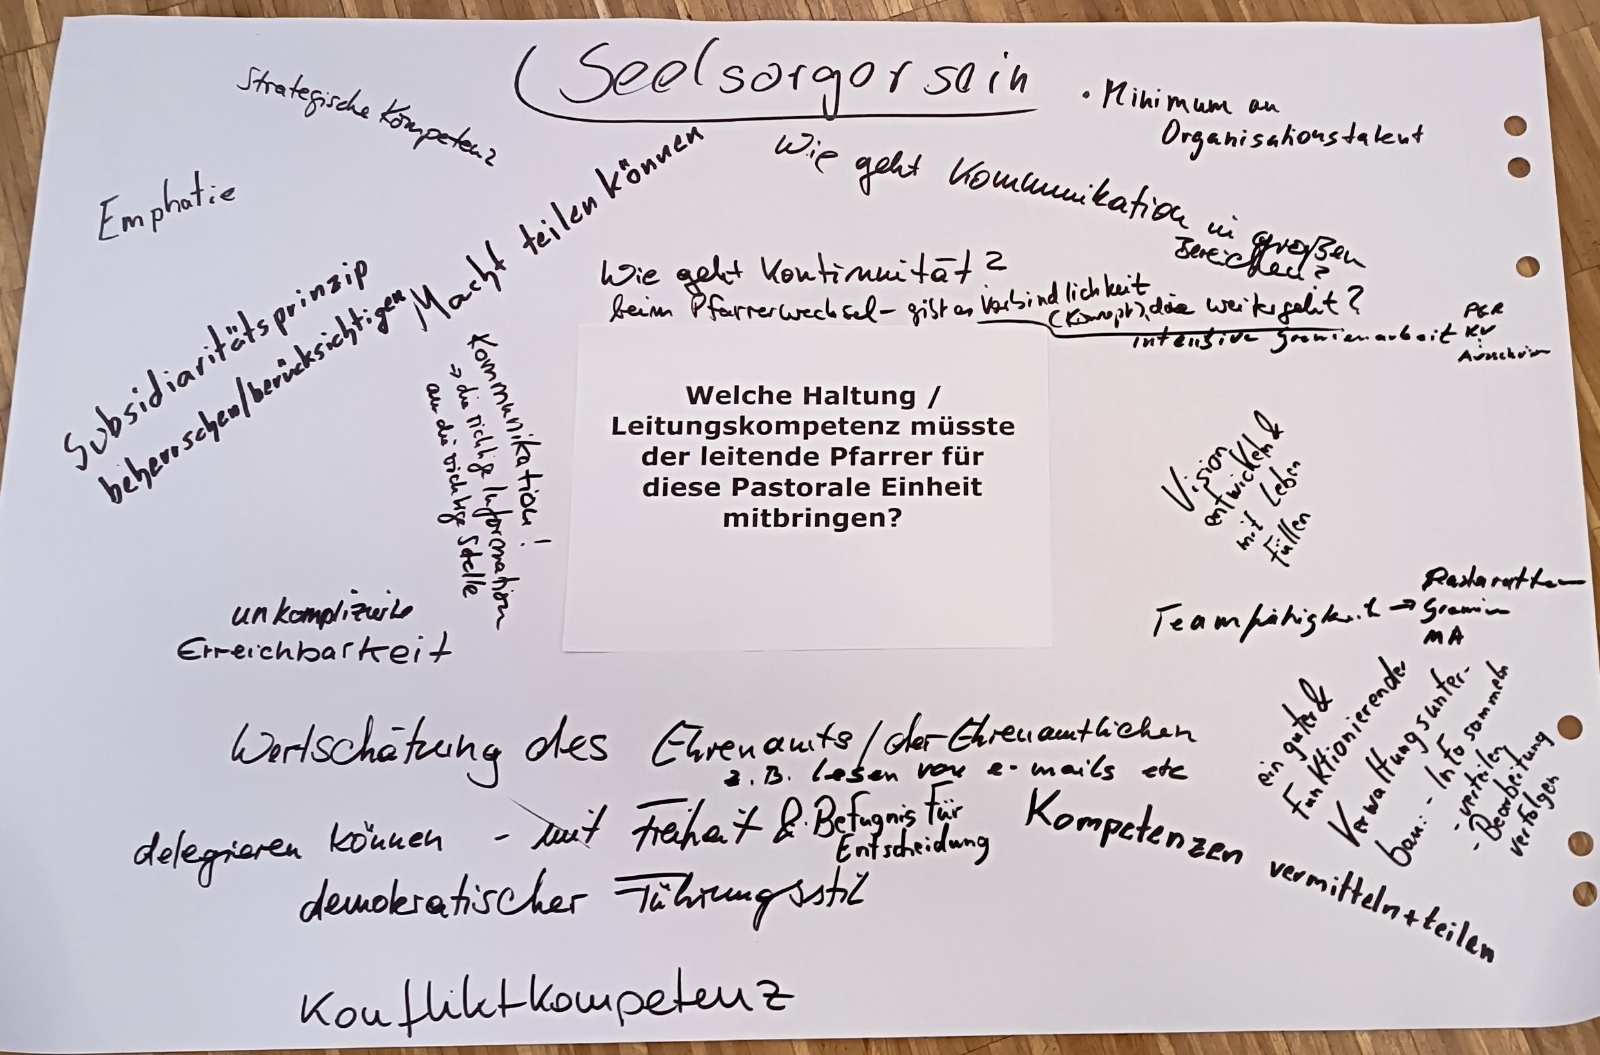 Seelsorger sein
Strategische Kompetenz
• Minimum an
Organisationstalent
Emphatie
Macht teilen können
Wie geht Kommunikation in großen
Bereichen?
Wie geht Kontinuität?
beim Pfarrerwechsel – gibt es Verbindlichkeit
(Konzept), die weitergeht?
intensive Gremienarbeit
PGR
KV
Subsidiaritätsprinzip
beherrschen/berücksichtigen
Kommunikation!
→ die richtige Information
an die richtige Stelle
Welche Haltung /
Leitungskompetenz müsste
der leitende Pfarrer für
diese Pastorale Einheit
mitbringen?
Vision
entwickeln &
mit Leben
füllen
unkomplizierte
Erreichbarkeit
Teamfähigkeit →
Gremien
MA
ein guter &
funktionierender
Verwaltungsunter-
bau: - Info sammeln
- verteilen
- Bearbeitung
verfolgen
Wertschätzung des Ehrenamts/der Ehrenamtlichen
z.B. lesen von e-mails etc
delegieren können – mit Freiheit & Befugnis für
Entscheidung
Kompetenzen vermitteln + teilen
demokratischer Führungsstil
Konfliktkompetenz